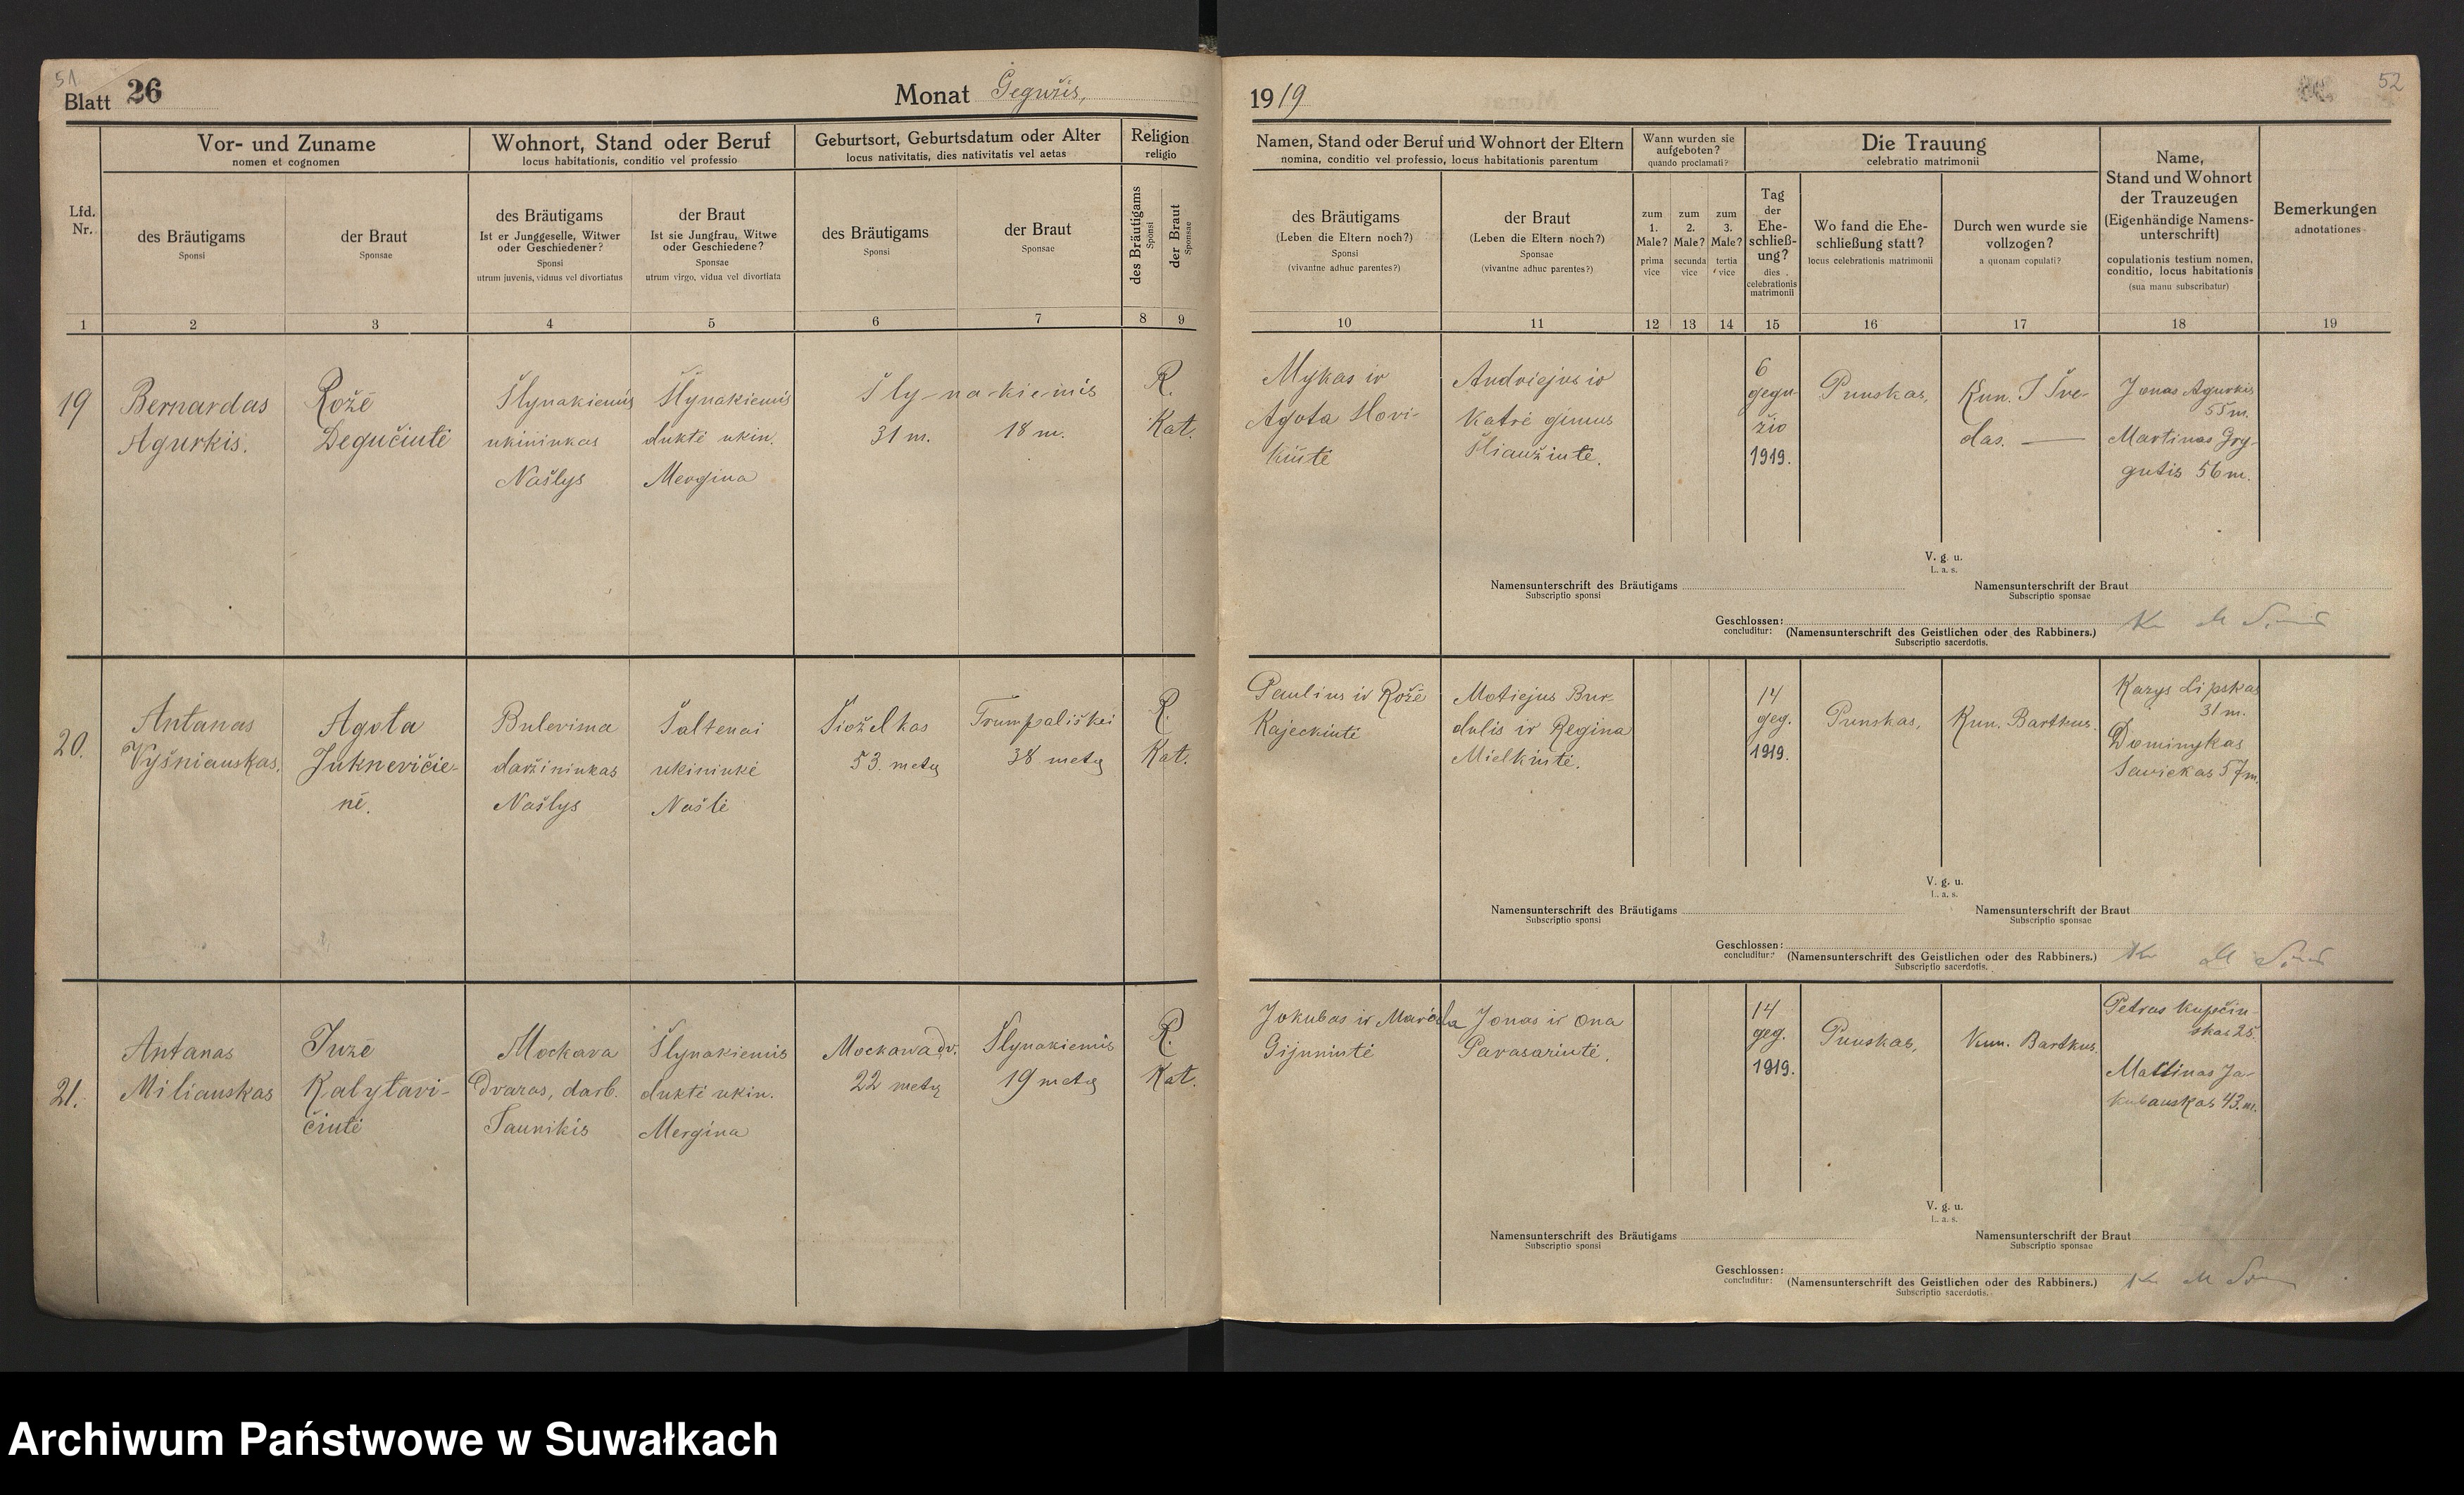 51
Blatt 26
Monat Gegužis,
Lfd. Nr.
Vor- und Zuname
nomen et cognomen
des Bräutigams
Sponsi
der Braut
Sponsae
Wohnort, Stand oder Beruf
locus habitationis, conditio vel professio
des Bräutigams
Ist er Junggeselle, Witwer
oder Geschiedener?
Sponsi
utrum juvenis, viduus vel divortiatus
der Braut
Ist sie Jungfrau, Witwe
oder Geschiedene?
Sponsae
utrum virgo, vidua vel divortiata
Geburtsort, Geburtsdatum oder Alter
locus nativitatis, dies nativitatis vel aetas
des Bräutigams
Sponsi
der Braut
Sponsae
Religion
religio
des Bräutigams
Sponsi
der Braut
Sponsae
1 2 3 4 5 6 7 8 9
19
Bernardas
Agurkis.
Rožė
Degučiutė
Šlynakiemis
ukininkas
Našlys
Šlynakiemis
duktė ukin.
Mergina
Šly-na-kie-mis
31 m. 18 m.
R.
Kat.
20.
Antanas
Vyšniauskas.
Agota
Juknevičie-
nė.
Bulevima
daržininkas
Našlys
Šaltenai
ukininkė
Našlė
53. metų
Trumpališkei
38 metų
R.
Kat.
21.
Antanas
Miliauskas
Juzė
Kalytavi-
čiutė
Mockava
Dvaras, darb.
Jaunikis
Šlynakiemis
duktė ukin.
Mergina
Mockawa dv.
22 metų
Šlynakiemis
19 metų
R.
Kat.
52
1919
Namen, Stand oder Beruf und Wohnort der Eltern
nomina, conditio vel professio, locus habitationis parentum
des Bräutigams
(Leben die Eltern noch?)
Sponsi
(vivantne adhuc parentes?)
der Braut
(Leben die Eltern noch?)
Sponsae
(vivantne adhuc parentes?)
Wann wurden sie
aufgeboten?
quando proclamati?
zum
1.
Male?
prima
vice
zum
2.
Male?
secunda
vice
zum
3.
Male?
tertia
vice
Die Trauung
celebratio matrimonii
Tag
der
Ehe-
schließ-
ung?
dies
celebrationis
matrimonii
Wo fand die Ehe-
schließung statt?
locus celebrationis matrimonii
Durch wen wurde sie
vollzogen?
a quonam copulati?
Name,
Stand und Wohnort
der Trauzeugen
(Eigenhändige Namens-
unterschrift)
copulationis testium nomen,
conditio, locus habitationis
(sua manu subscribatur)
Bemerkungen
adnotationes
10 11 12 13 14 15 16 17 18 19
Mykas ir
Agota
Andriejus ir
Katrė gimus
6
gegu-
žio
1919.
Punskas,
Kun. J Šve-
das.
Jonas Agurkis
55 m.
Martinas Gry-
gutis 56 m.
V. g. u.
L. a. s.
Namensunterschrift des Bräutigams
Subscriptio sponsi
Namensunterschrift der Braut
Subscriptio sponsae
Geschlossen:
concluditur:
(Namensunterschrift des Geistlichen oder des Rabbiners.)
Subscriptio sacerdotis.
Paulius ir Rožė
Kajeckiutė
Motiejus Bur-
dulis ir Regina
Mielkiutė.
14
geg.
1919.
Punskas,
Kun. Bartkus.
Kazys Lipskas
31 m.
Dominykas
Savickas 57 m.
V. g. u.
L. a. s.
Namensunterschrift des Bräutigams
Subscriptio sponsi
Namensunterschrift der Braut
Subscriptio sponsae
Geschlossen:
concluditur:
(Namensunterschrift des Geistlichen oder des Rabbiners.)
Subscriptio sacerdotis.
Jokubas ir
Gijuniutė
Jonas ir Ona
Pavasariutė.
14
geg.
1919.
Punskas,
Kun. Bartkus.
Petras Kupčin-
skas 25.
Martinas Ja-
kubauskas 43. m.
V. g. u.
L. a. s.
Namensunterschrift des Bräutigams
Subscriptio sponsi
Namensunterschrift der Braut
Subscriptio sponsae
Geschlossen:
concluditur:
(Namensunterschrift des Geistlichen oder des Rabbiners.)
Subscriptio sacerdotis.
Archiwum Państwowe w Suwałkach